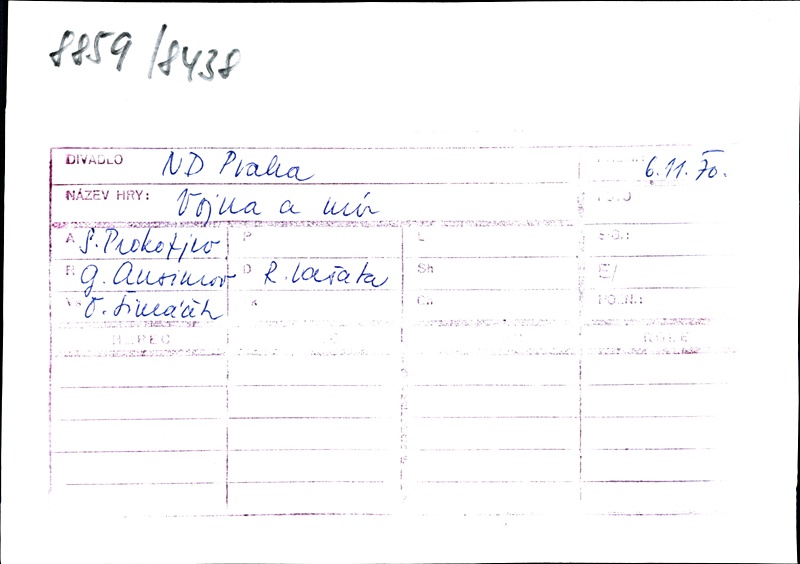 8859/8438
DIVADLO ND Praha 6.11.70.
NÁZEV HRY: Vojna a mír
A S. Prokofjev P L
R G. Ansimov D R. Vašata Sh E/
O. Šimáček
HEREC